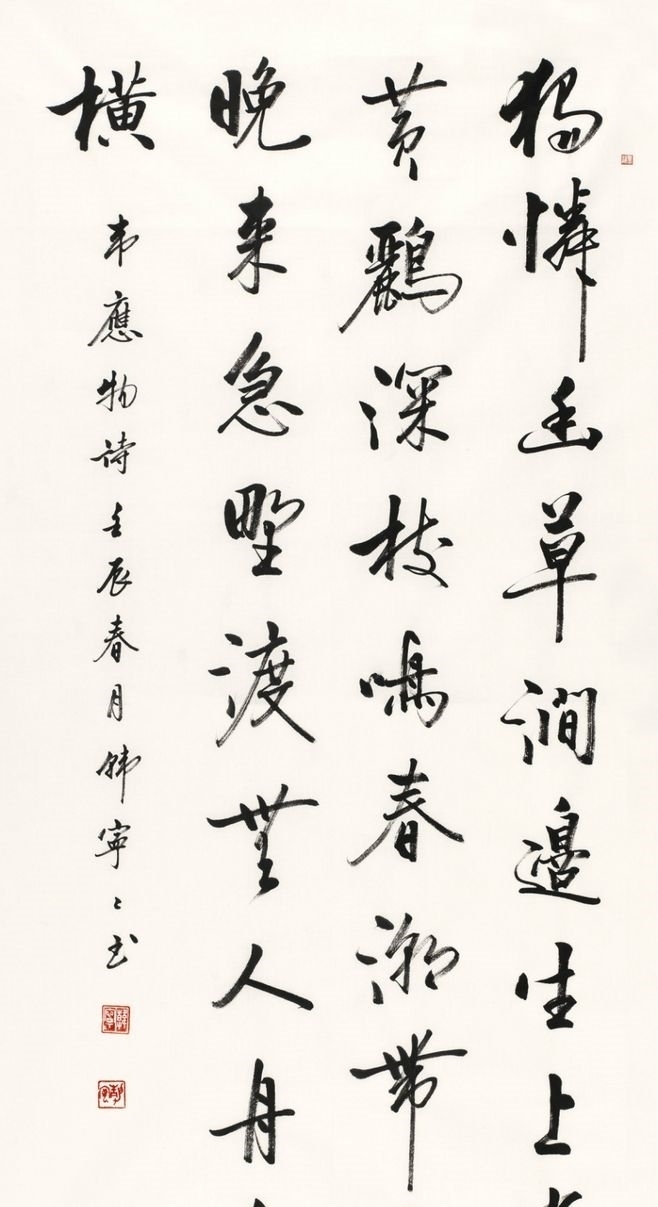 獨憐幽草澗邊生上
黄鸝深枝鳴春潮帶
晚来急野渡無人舟
橫
韦應物诗壬辰春月韩寧〻书